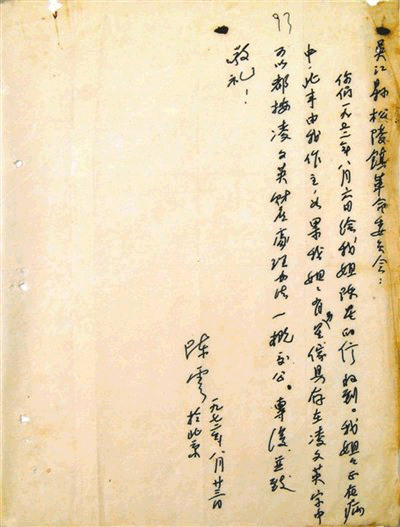 93
吴江县松陵镇革命委员会：
你们一九七二年八月六日给我姐陈星的信收到。我姐々正在病
中，此事由我作主，如果我姐々有傢具存在凌文英家中
可以都按凌文英财产处理办法一概交公。专复并致
敬礼！
陈云
一九七二年八月廿三日
於北京